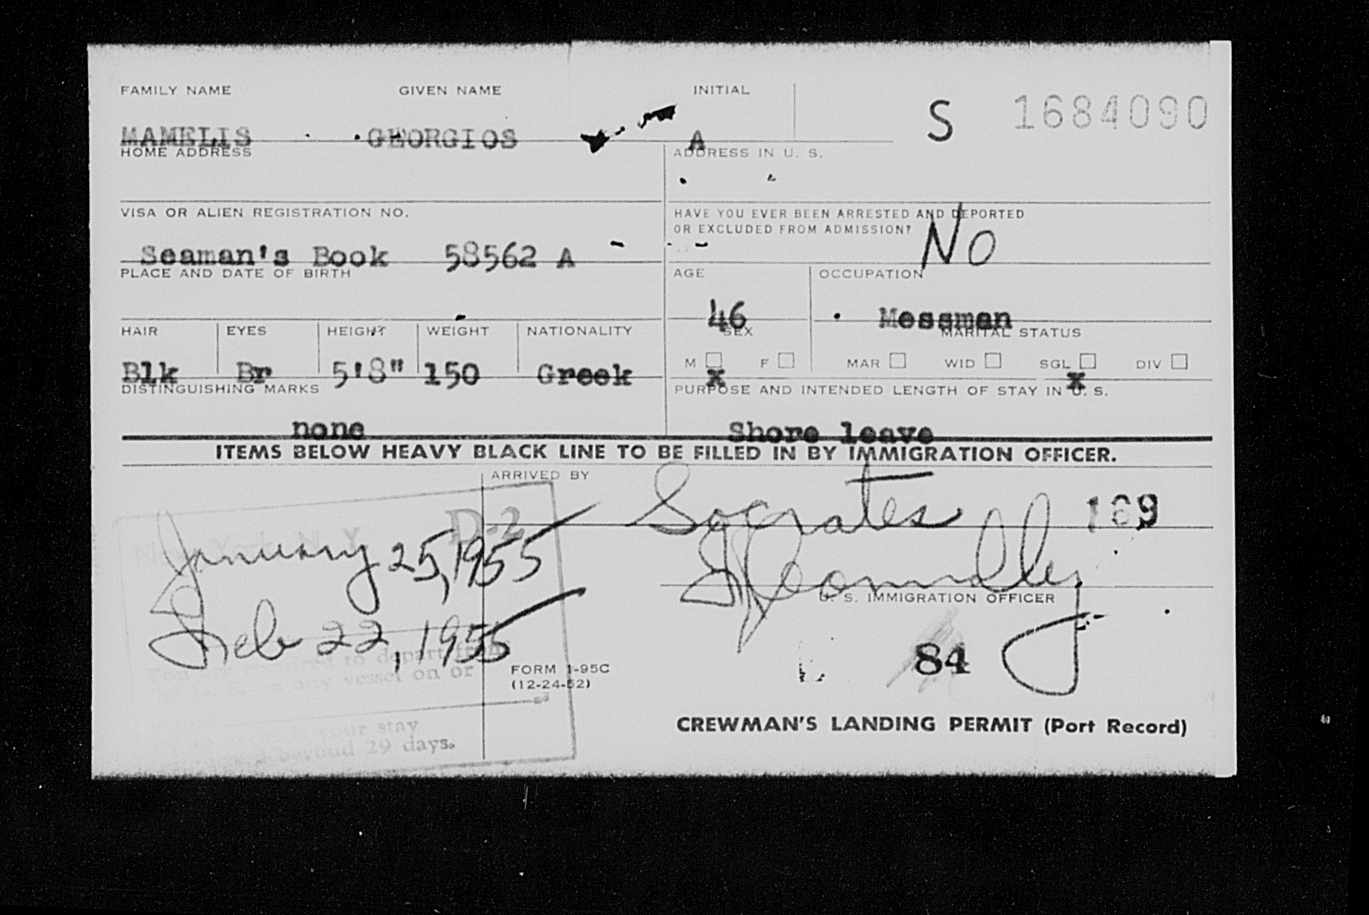 FAMILY NAME GIVEN NAME INITIAL
S 1684090
MAMELIS GEORGIOS A
HOME ADDRESS ADDRESS IN U. S.
VISA OR ALIEN REGISTRATION NO. HAVE YOU EVER BEEN ARRESTED AND DEPORTED
OR EXCLUDED FROM ADMISSION?
No
Seaman's Book 58562 A
PLACE AND DATE OF BIRTH AGE OCCUPATION
46 Messman
HAIR EYES HEIGHT WEIGHT NATIONALITY SEX MARITAL STATUS
M F MAR WID SGL DIV
Blk Br 5'8" 150 Greek X X
DISTINGUISHING MARKS PURPOSE AND INTENDED LENGTH OF STAY IN U. S.
none Shore leave
ITEMS BELOW HEAVY BLACK LINE TO BE FILLED IN BY IMMIGRATION OFFICER.
ARRIVED BY
Socrates 169
D-2
January 25, 1955
U. S. IMMIGRATION OFFICER
Feb 22, 1955
to depart from
vessel on or
84
FORM I-95C
(12-24-52)
your stay
beyond 29 days.
CREWMAN'S LANDING PERMIT (Port Record)